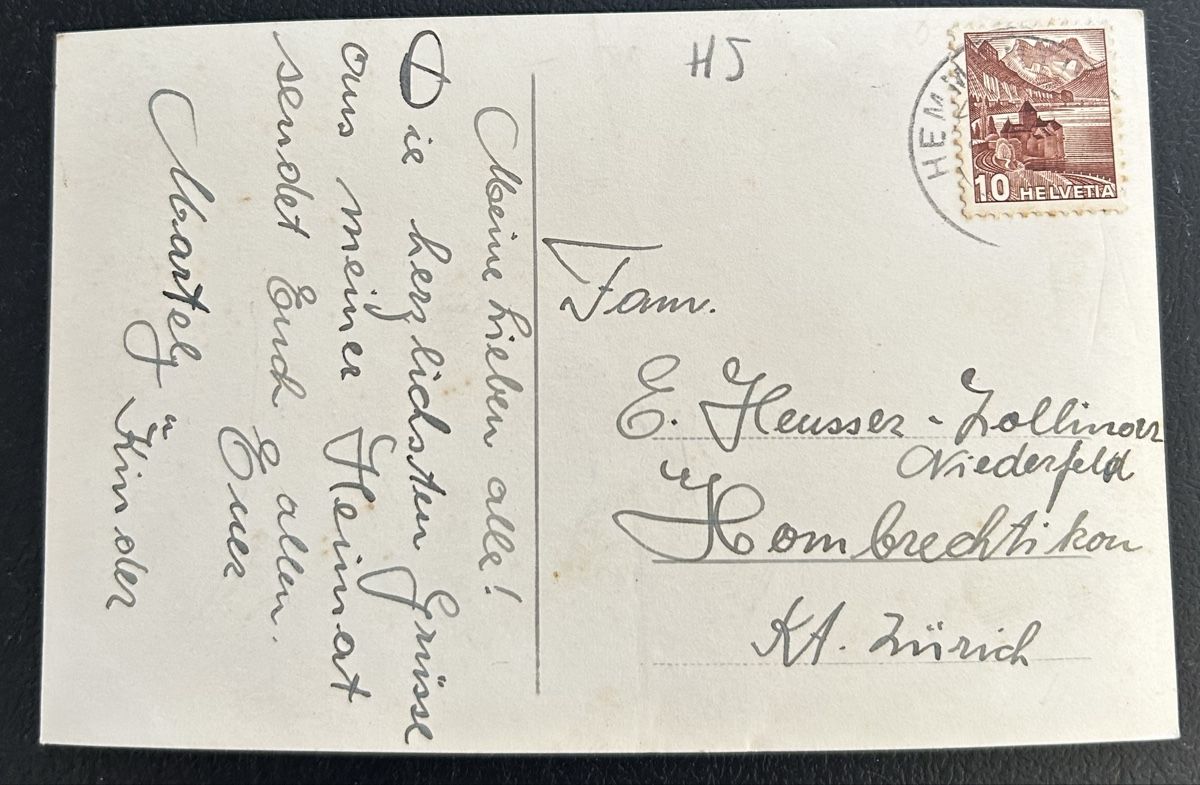 H5
HEMM
10 HELVETIA
Meine Lieben alle!
Die herzlichsten Grüsse
aus meiner Heimat
sendet Euch allen.
Euer
Martely u Kinder
Fam.
E. Heusser-Zollinger
Niederfeld
Hombrechtikon
Kt. Zürich